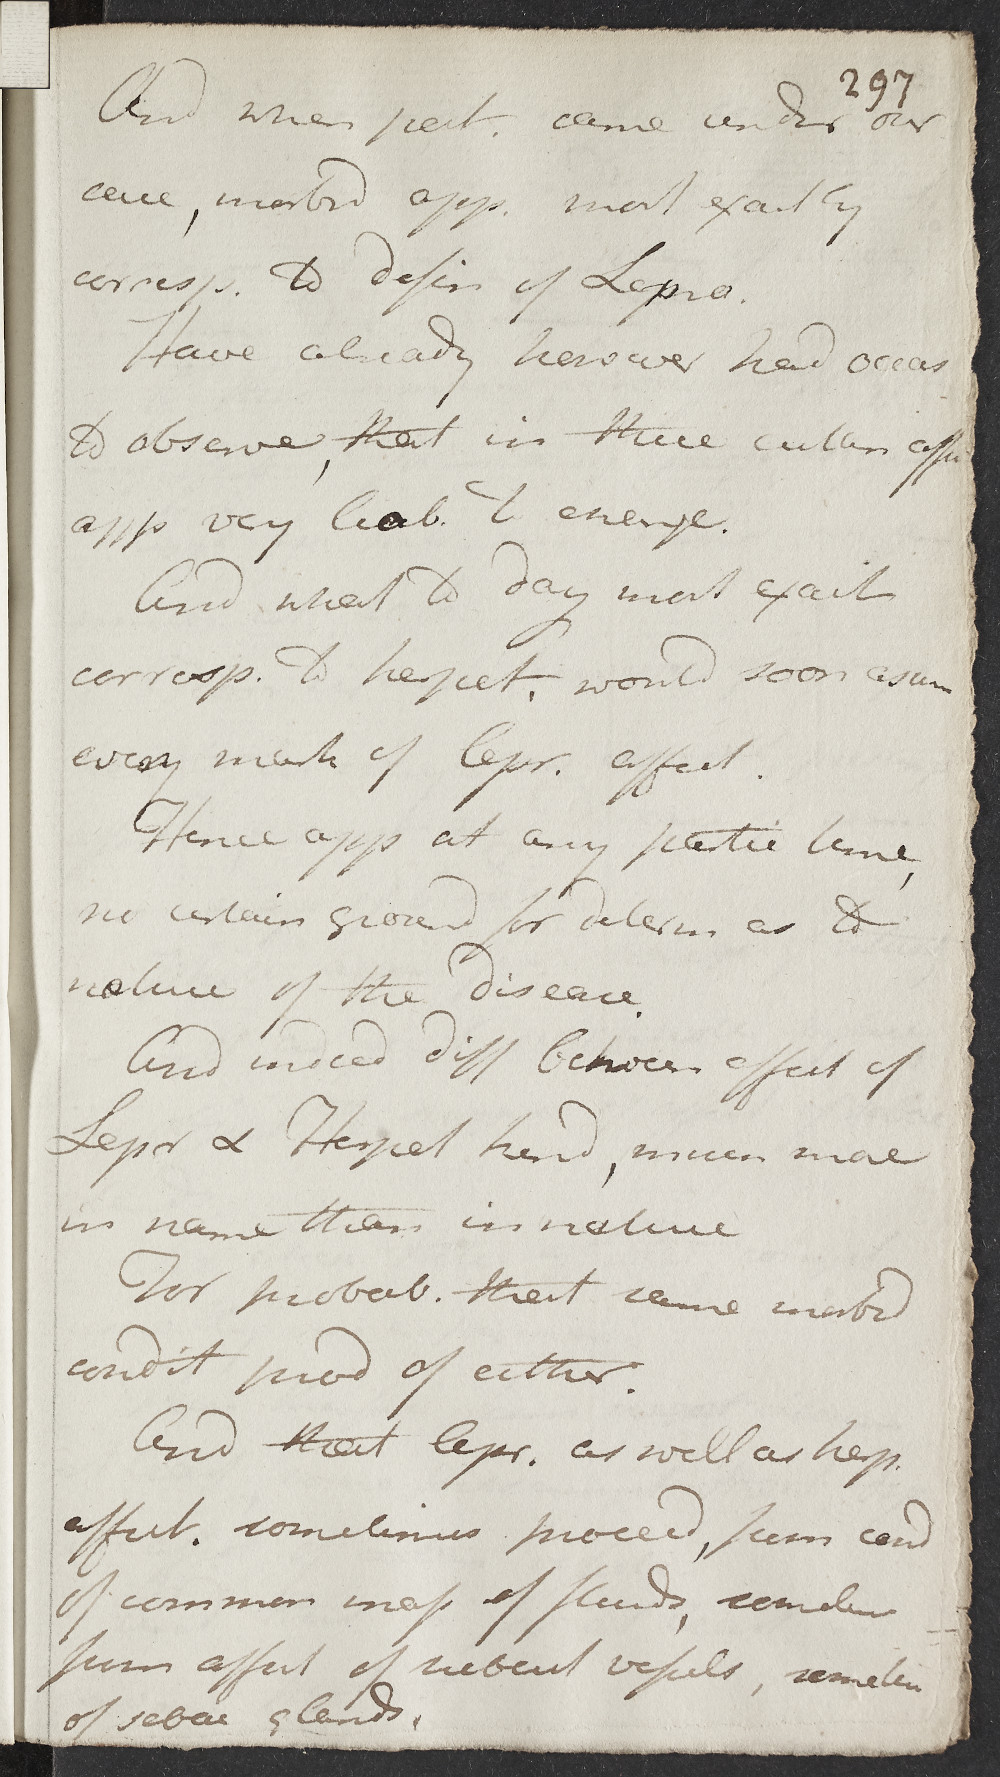 297
And when pat. came under our
care, morbid app. most exactly
corresp. to defin of Lepra.
Have already however had occas
to observe, that in these cutan affec
app very liab. to change.
And what to day most exact
corresp. to herpet. would soon assum
every mark of lepr. affect.
Hence app at any partic time,
no certain ground for determ as to
nature of the disease.
And indeed diff between affect of
Lepr & Herpet kind, much more
in name than in nature
For probab. that same morbid
condit prod of either.
And that lepr. as well as herp.
affect. sometimes proceed, from cond
of common mass of fluids, sometim
from affect of subcut vessels, sometim
of sebac glands.